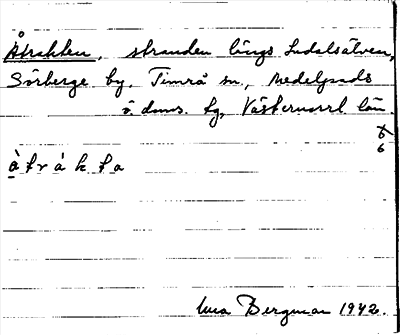 Åtrakten, stranden längs Indalsälven,
Sörberge by, Timrå sn., Medelpads
ö. doms. tg, Västernorrl. län.
6
6
å t r á k t a
Bergman 1942.